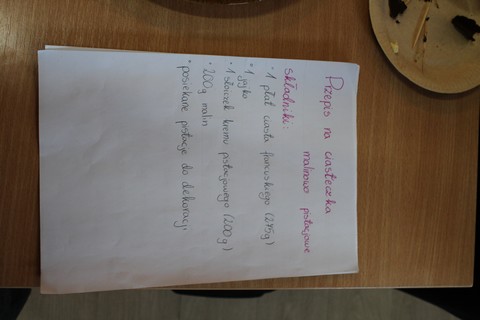 Przepis na ciasteczka
malinowo pistacjowe
składniki:
• 1 płat ciasta francuskiego (275g)
• 1 jajko
• 1 słoiczek kremu pistacjowego (200g)
• 200g malin
• posiekane pistacje do dekoracji